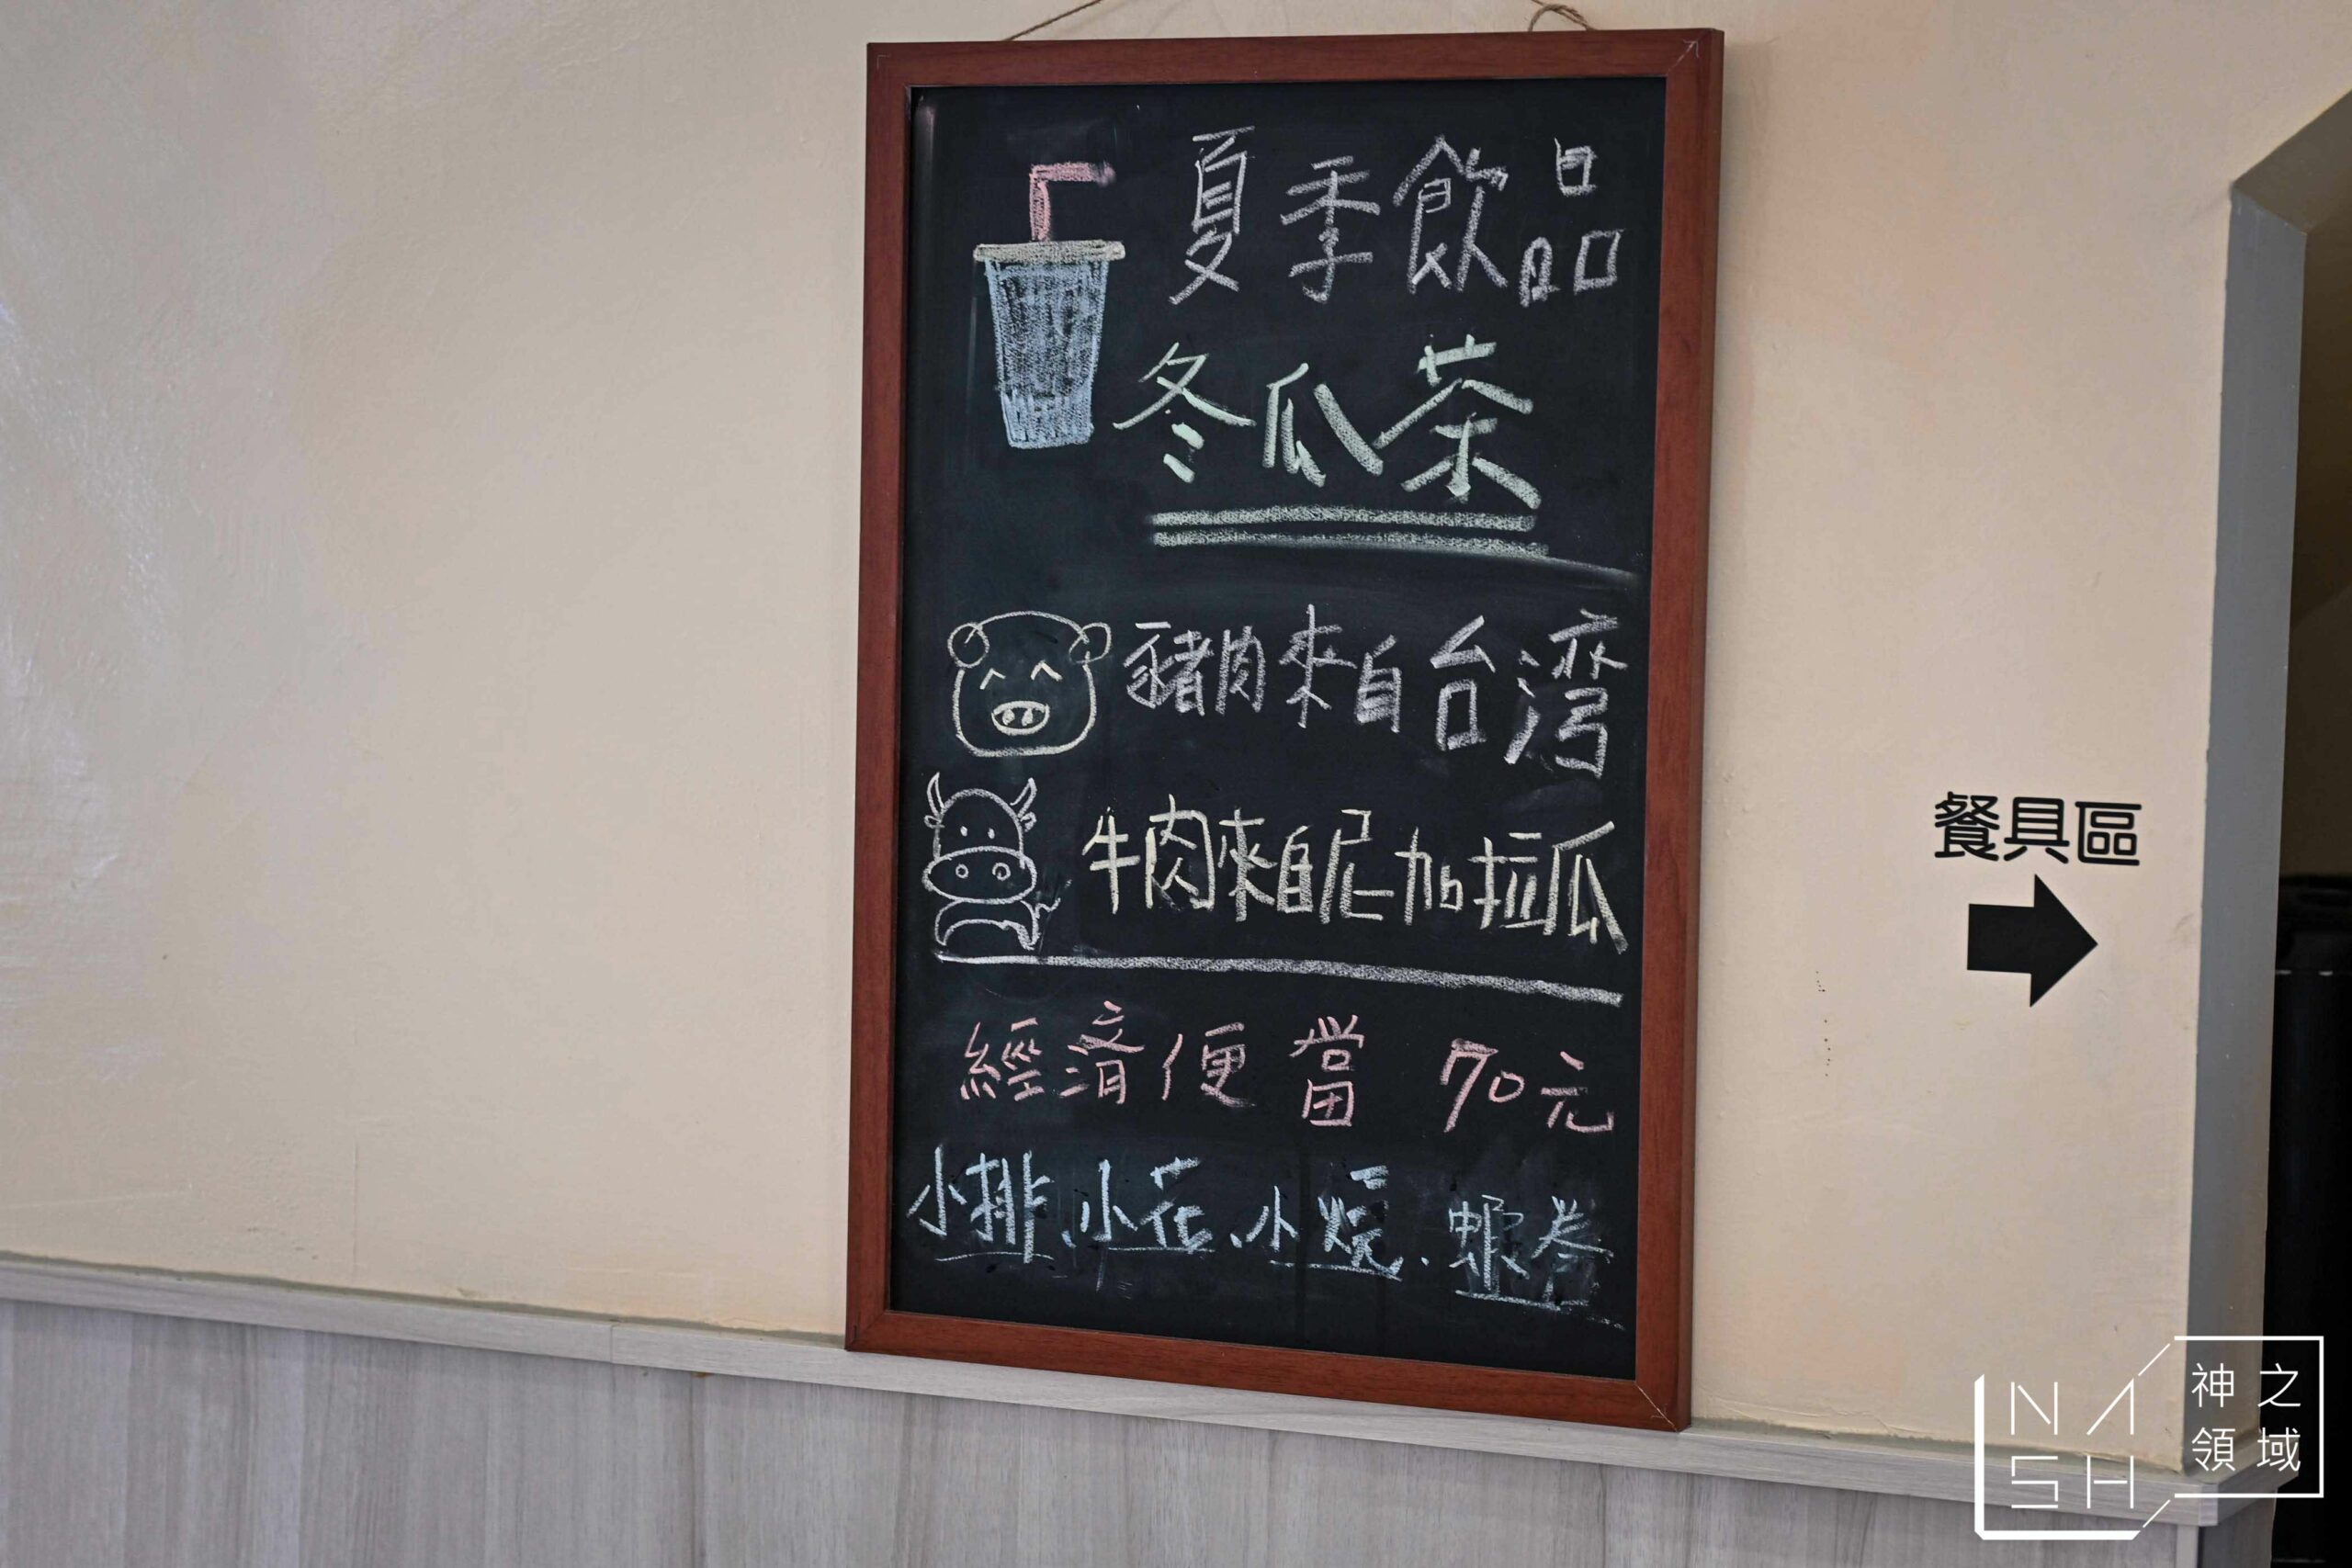 夏季飲品
冬瓜茶
豬肉來自台湾
牛肉來自尼加拉瓜
經濟便當 70元
小排、小花、小燒.蝦卷
餐具區
NASH
神之
領域